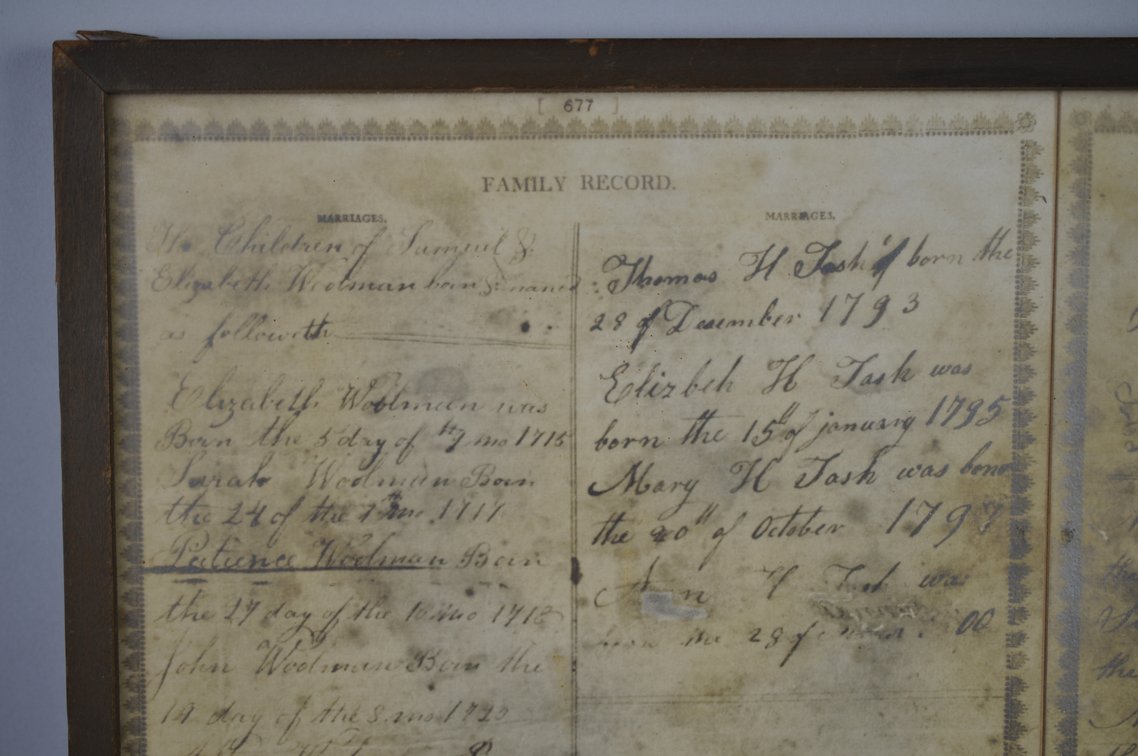 [ 677 ]
FAMILY RECORD.
MARRIAGES.
The Children of Samuel &
Elizabeth Woolman born & named
as followeth
Elizabeth Woolman was
Born the 5 day of 7 mo 1715
Sarah Woolman Born
the 24 of the 1 mo
Patience Woolman Born
the 27 day of the 10 mo 1718
John Woolman Born the
19 day of the 8 mo 1720
MARRIAGES.
Thomas H Tash born the
28 of Desember 1793
Elizbeh H Tash was
born the 15th of january 1795
Mary H Tash was born
the 20th of October 1797
Ann H Tash was
the 28 of 00